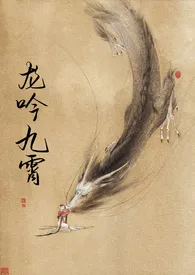 龙吟九霄